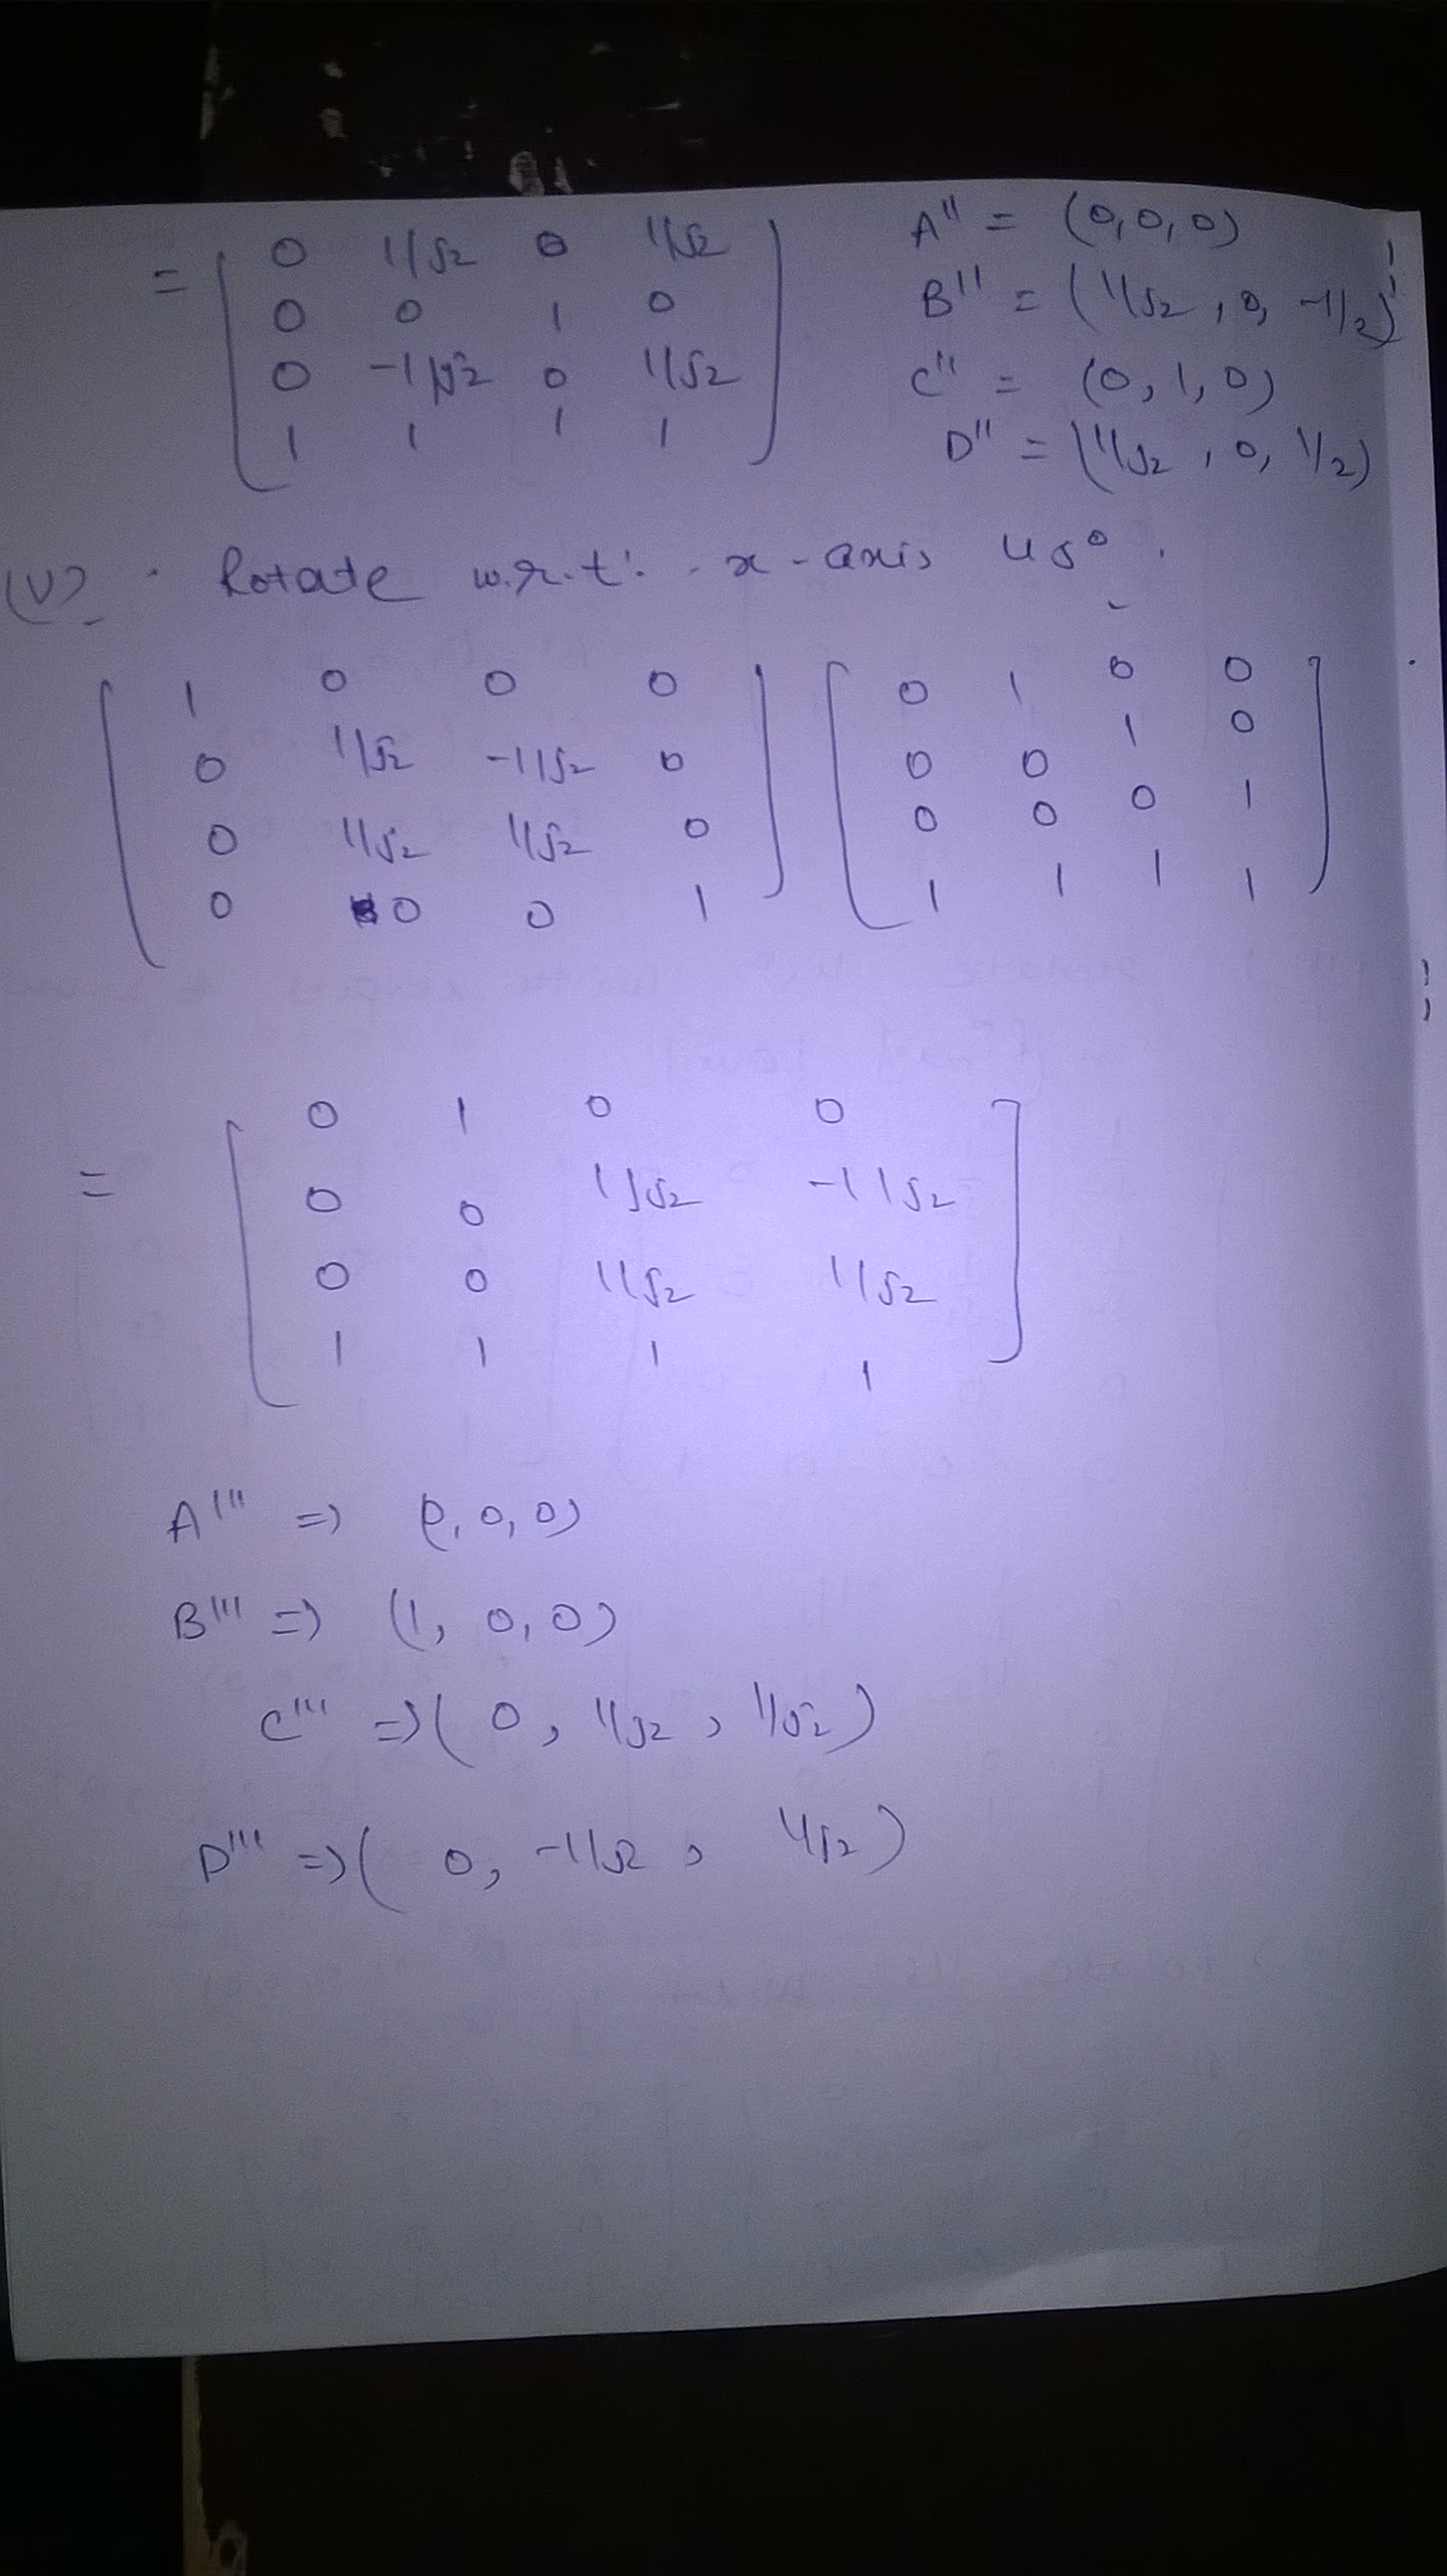 = [ 0 1/√2 0 1/√2
0 0 1 0
0 -1/√2 0 1/√2
1 1 1 1 ]
A'' = (0,0,0)
B'' = (1/√2, 0, -1/2)
C'' = (0,1,0)
D'' = (1/√2, 0, 1/2)
(V). Rotate w.r.t. x-axis 45°.
[ 1 0 0 0
0 1/√2 -1/√2 0
0 1/√2 1/√2 0
0 0 0 1 ]
[ 0 1 0 0
0 0 1 0
0 0 0 1
1 1 1 1 ]
= [ 0 1 0 0
0 0 1/√2 -1/√2
0 0 1/√2 1/√2
1 1 1 1 ]
A''' => (0,0,0)
B''' => (1,0,0)
C''' => (0, 1/√2, 1/√2)
D''' => (0, -1/√2, 1/√2)